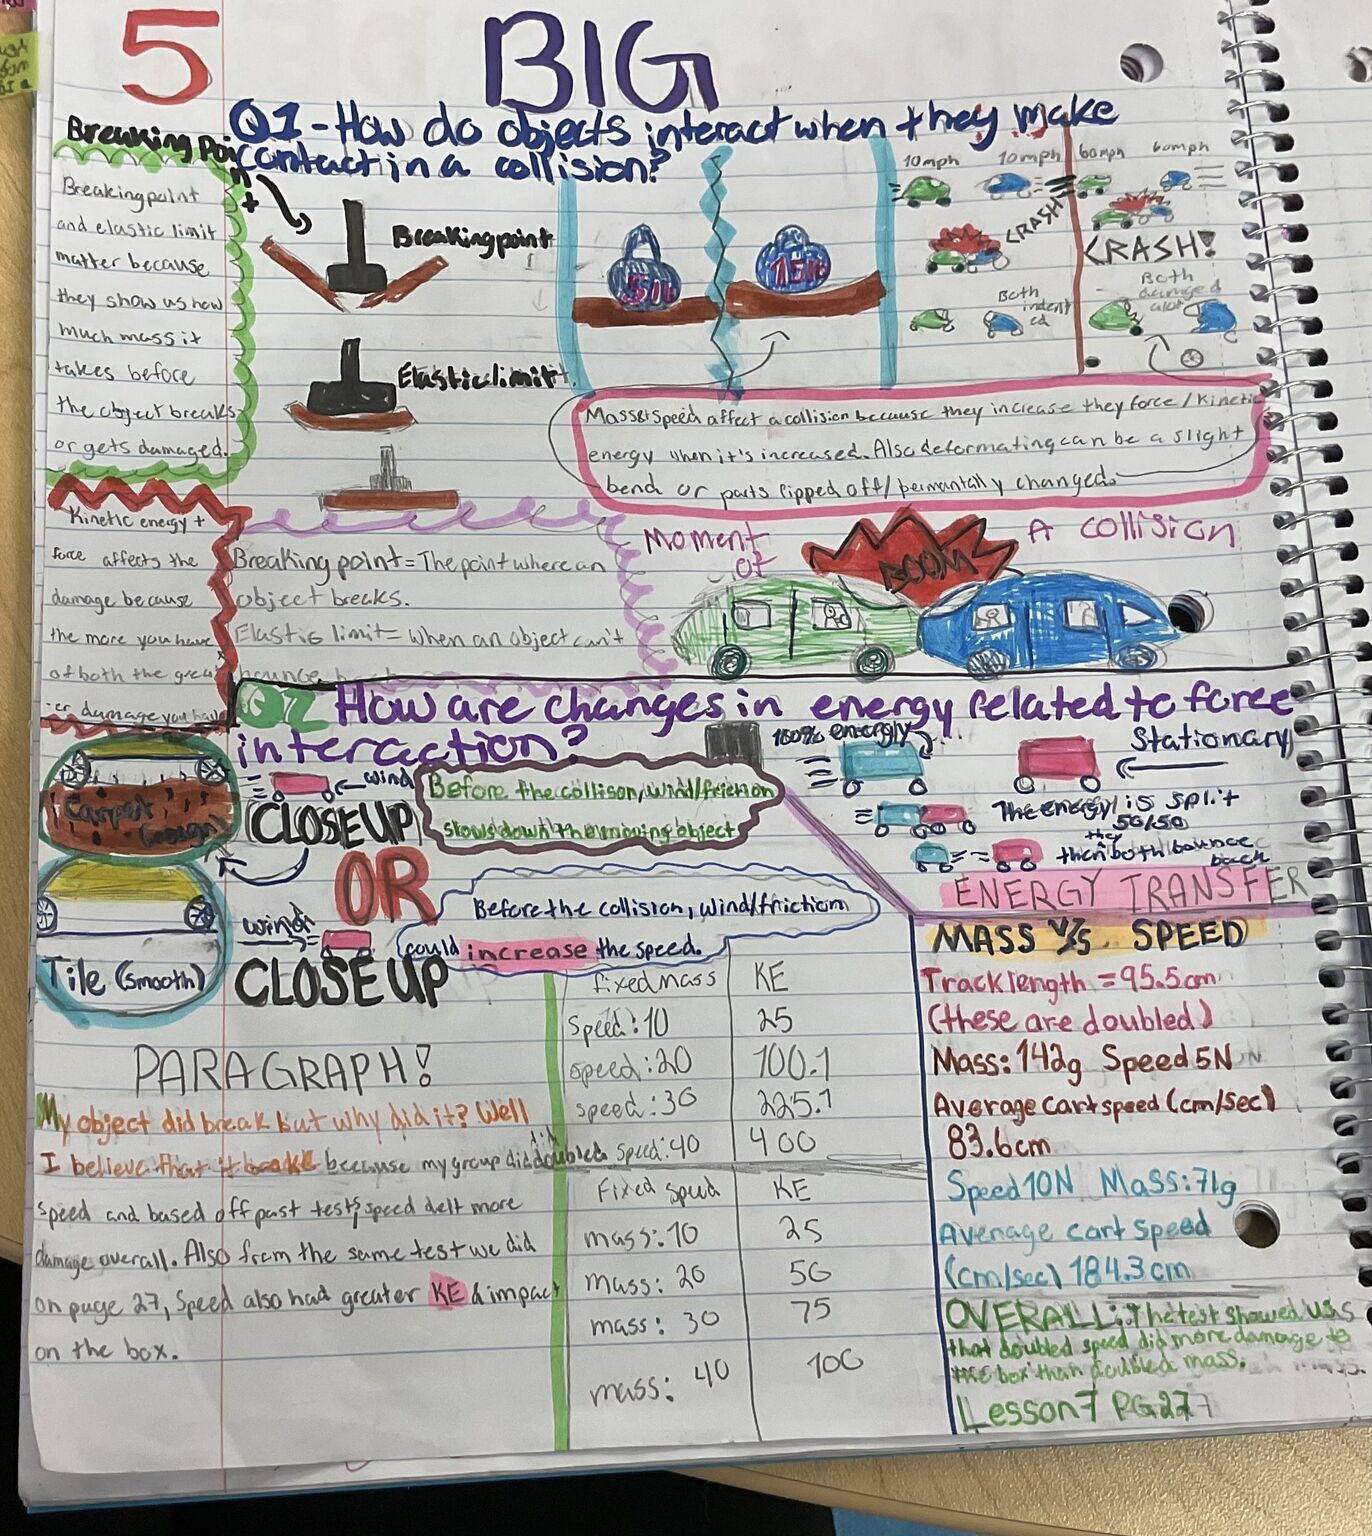 5 BIG
Q1 - How do objects interact when they make
contact in a collision?
Breaking point
Breaking point
and elastic limit
matter because
they show us how
much mass it
takes before
the object breaks
or gets damaged.
Breaking point
Elastic limit
5lb
15lb
10mph 10mph
CRASH
Both indent
ed
60mph 60mph
CRASH!
Both
damaged
alot
Mass & speed affect a collision because they increase they force / kinetic
energy when it's increased. Also deformating can be a slight
bend or parts ripped off / permantally changed.
Kinetic energy +
force affects the
damage because
the more you have
of both the great
er damage you have
Breaking point = The point where an
object breaks.
Elastic limit = when an object can't
bounce back
Moment
of
A collision
BOOM
Q2 How are changes in energy related to force
interaction?
Carpet
(rough)
wind
CLOSE UP
Before the collison, wind/friction
slows down the moving object
OR
Tile (smooth)
wind
CLOSE UP
Before the collision, wind/friction
could increase the speed.
100% energy
Stationary
The energy is split
50/50
they
then both bounce
back
ENERGY TRANSFER
PARAGRAPH!
My object did break but why did it? Well
I believe that it because my group did doubled
speed and based off past tests, speed delt more
damage overall. Also from the same test we did
on page 27, Speed also had greater KE & impact
on the box.
fixed mass KE
Speed: 10 25
speed: 20 100.1
speed: 30 225.1
Speed: 40 400
Fixed speed KE
mass: 10 25
mass: 20 50
mass: 30 75
mass: 40 100
MASS V/S SPEED
Track length = 95.5cm
(these are doubled)
Mass: 142g Speed 5N
Average cart speed (cm/sec)
83.6cm
Speed 10N Mass: 71g
Average cart speed
(cm/sec) 184.3cm
OVERALL: The test showed us
that doubled speed did more damage to
the box than doubled mass.
Lesson 7 PG 27